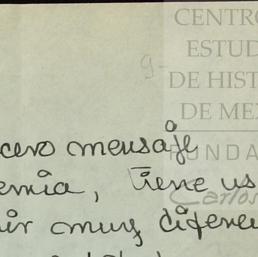 CENTRO
ESTUD
DE HIST
DE ME
FUNDA
Carlos
cero mensaje
emia, tiene us
ir muy diferen